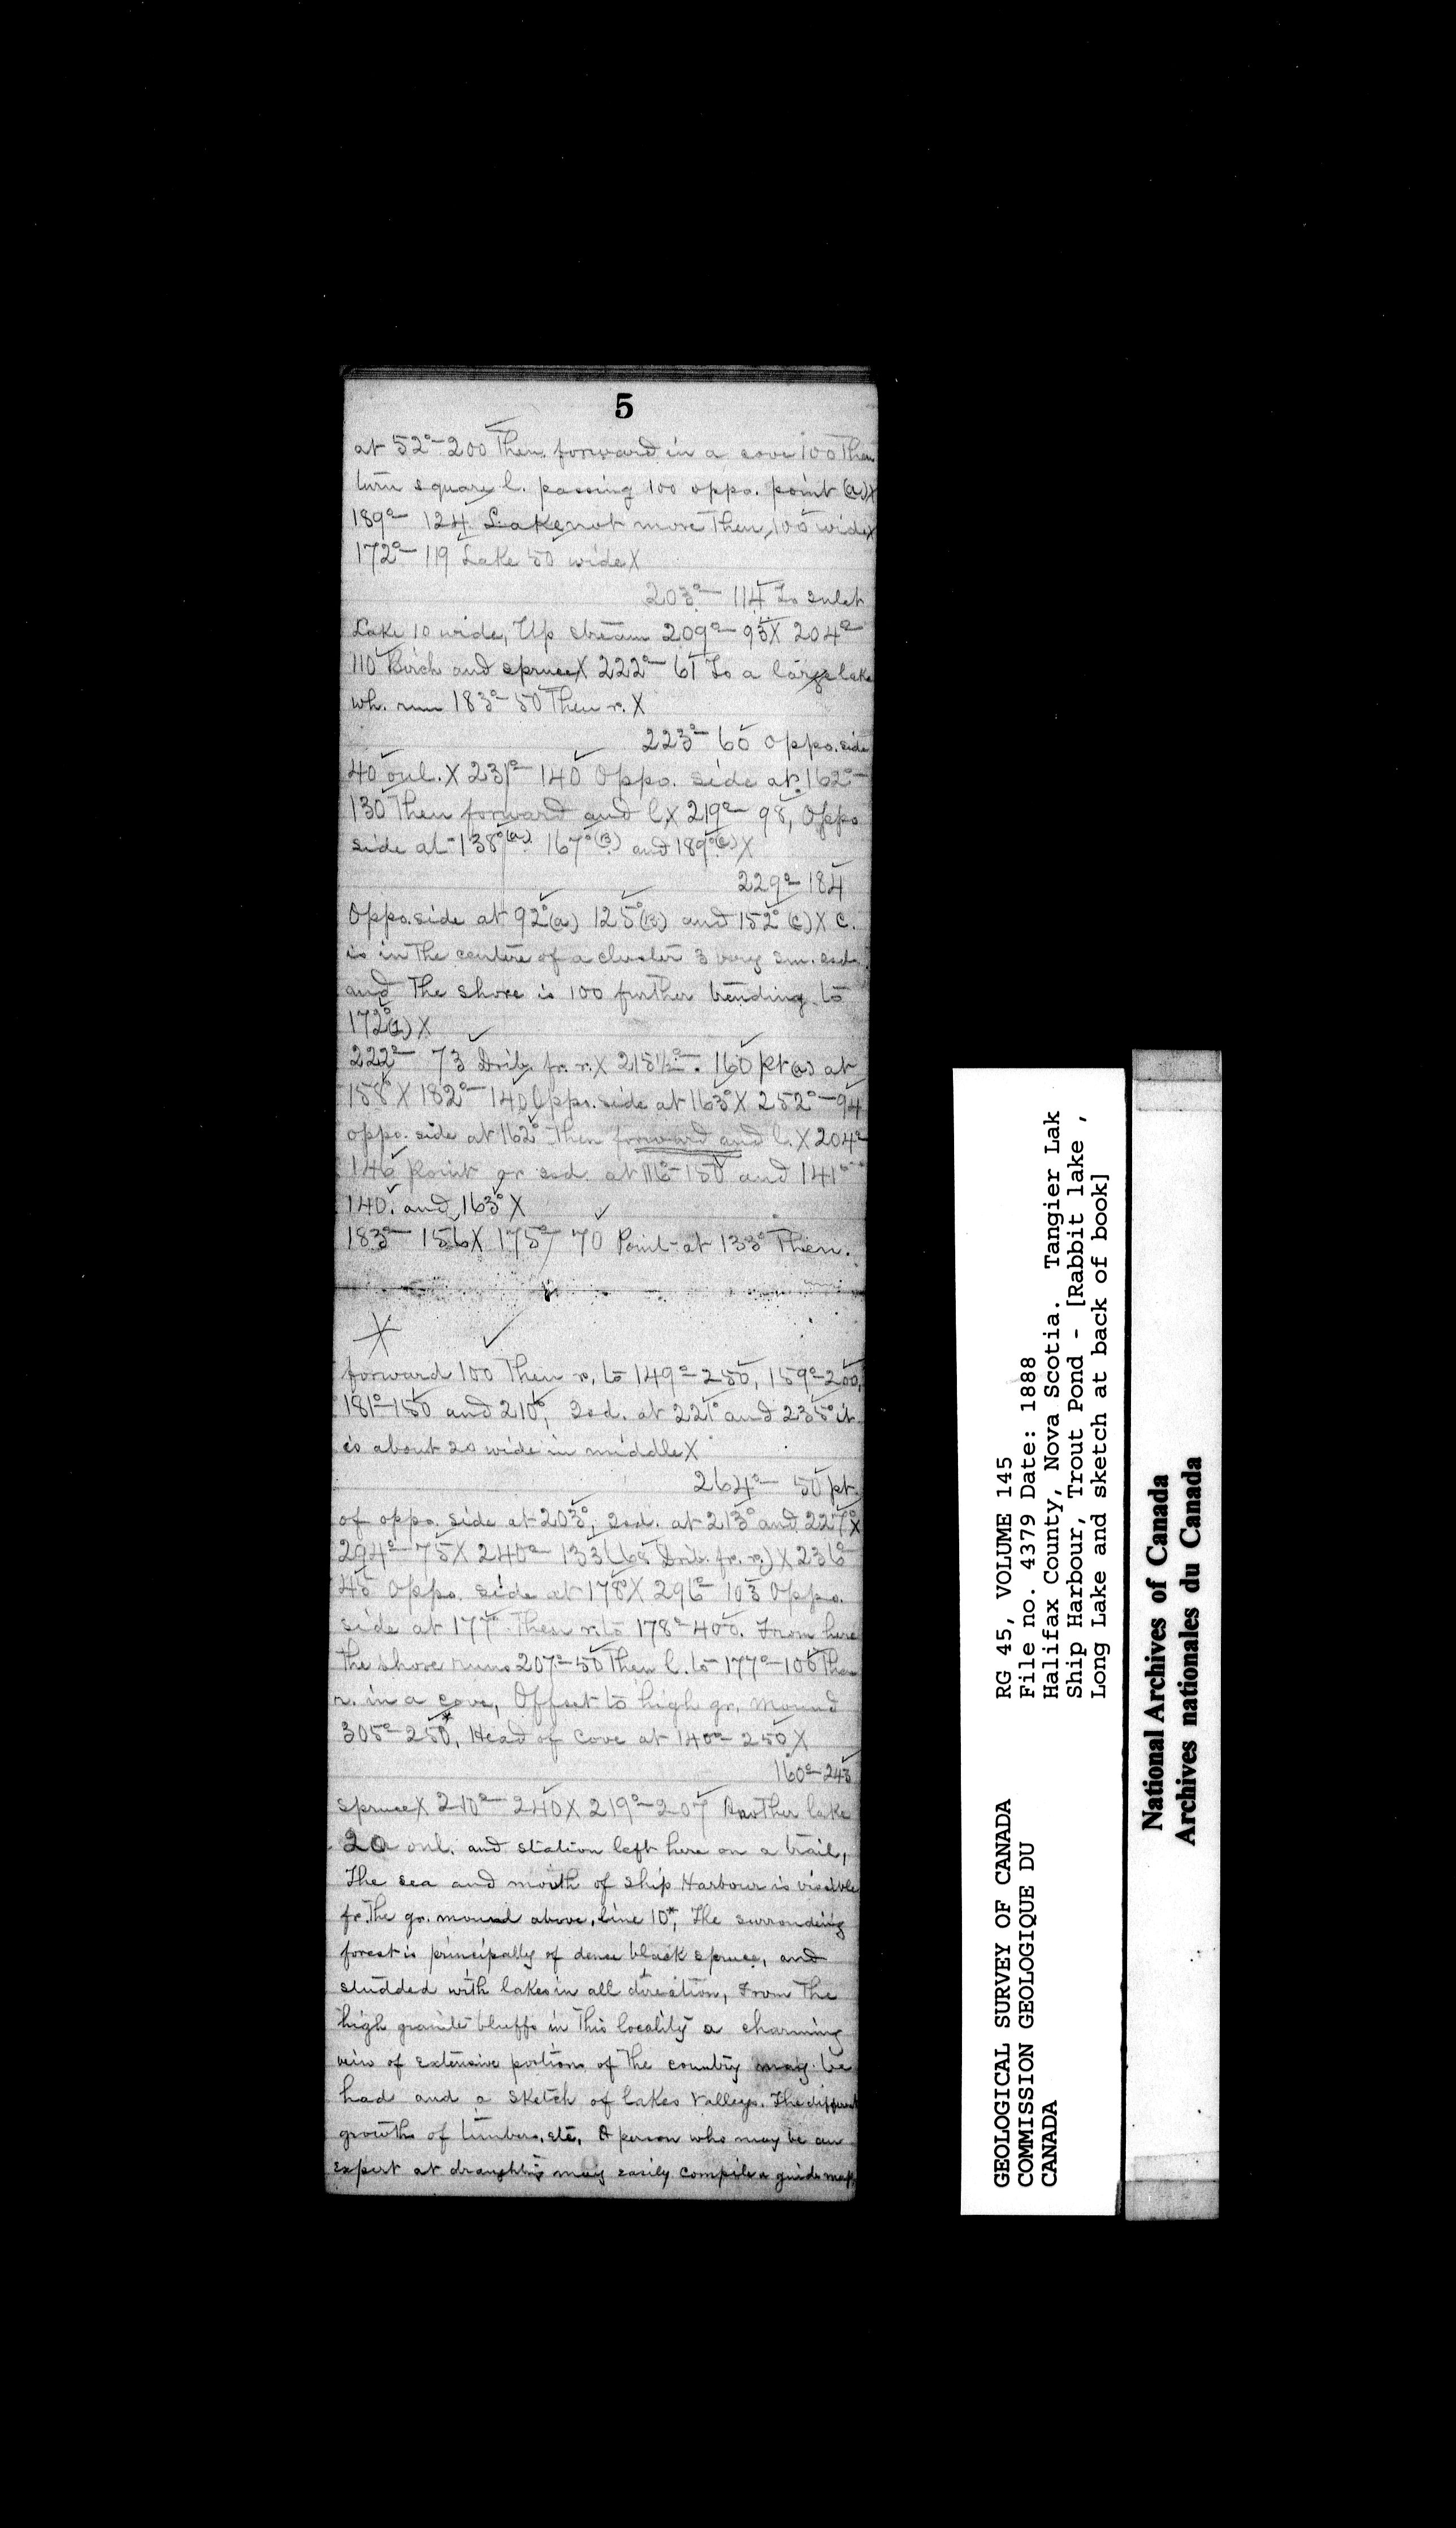 5
at 52°-200 Then forward in a cove 100 Then
turn square l. passing 100 oppo. point (a)X
189°- 124 Lake not more Then 100 wideX
172°- 119 Lake 50 wideX
203°- 114 To Inlet
Lake 10 wide, Up stream 209°- 93X 204°-
110 Birch and spruceX 222°- 61 To a large lake
wh. run 183°-50 Then r. X
223°- 60 Oppo. side
40 onl. X 231°- 140 Oppo. side at 162°-
130 Then forward and l.X 219°- 98, Oppo
side at 138°(a) 167°(B) and 189°(c)X
229°- 184
Oppo. side at 92°(a) 125°(B) and 152°(c)X C.
is in The centre of a cluster 3 very sm.
and The shore is 100 further trending to
172°(1)X
222°- 73 Drib. fr. r.X 215½°- 160 pt (a) at
158°X 182°- 140 Oppo. side at 163°X 252°- 94
oppo. side at 162° Then forward and l. X 204°-
146 Point or isd. at 116°-150 and 141°-
140. and 163°X
183°- 156X 175°- 70 Point at 133° Then.
forward 100 Then r. to 149°-250, 159°-200,
181°-150 and 210°, 2 isd. at 221° and 235° it
is about 20 wide in middleX
264°- 50 pt.
of oppo. side at 203°, 2 isd. at 213° and 227°X
294°- 75X 240°- 133 (68 Drib. fr. r.)X 236°-
45 Oppo. side at 178°X 296°- 103 Oppo.
side at 177° Then r. to 178°-400. From here
the shore runs 207°-50 Then l. to 177°-100 Then
r. in a cove, Offset to high gr. mound
305°-250*, Head of Cove at 140°-250X
160°-248
spruceX 210°- 240X 219°-207 Another lake
20 onl. and station left here on a trail,
The sea and mouth of Ship Harbour is visible
fr. The gr. mound above, line 10*, The surrounding
forest is principally of dense black spruce, and
studded with lakes in all direction, From The
high granite bluffs in This locality a charming
veiw of extensive portions of The country may be
had and a sketch of lakes valleys. The different
growths of timbers, etc. A person who may be an
expert at draughting may easily compile a guide map
RG 45, VOLUME 145
File no. 4379 Date: 1888
Halifax County, Nova Scotia. Tangier Lak
Ship Harbour, Trout Pond - [Rabbit lake ,
Long Lake and sketch at back of book]
GEOLOGICAL SURVEY OF CANADA
COMMISSION GEOLOGIQUE DU
CANADA
National Archives of Canada
Archives nationales du Canada